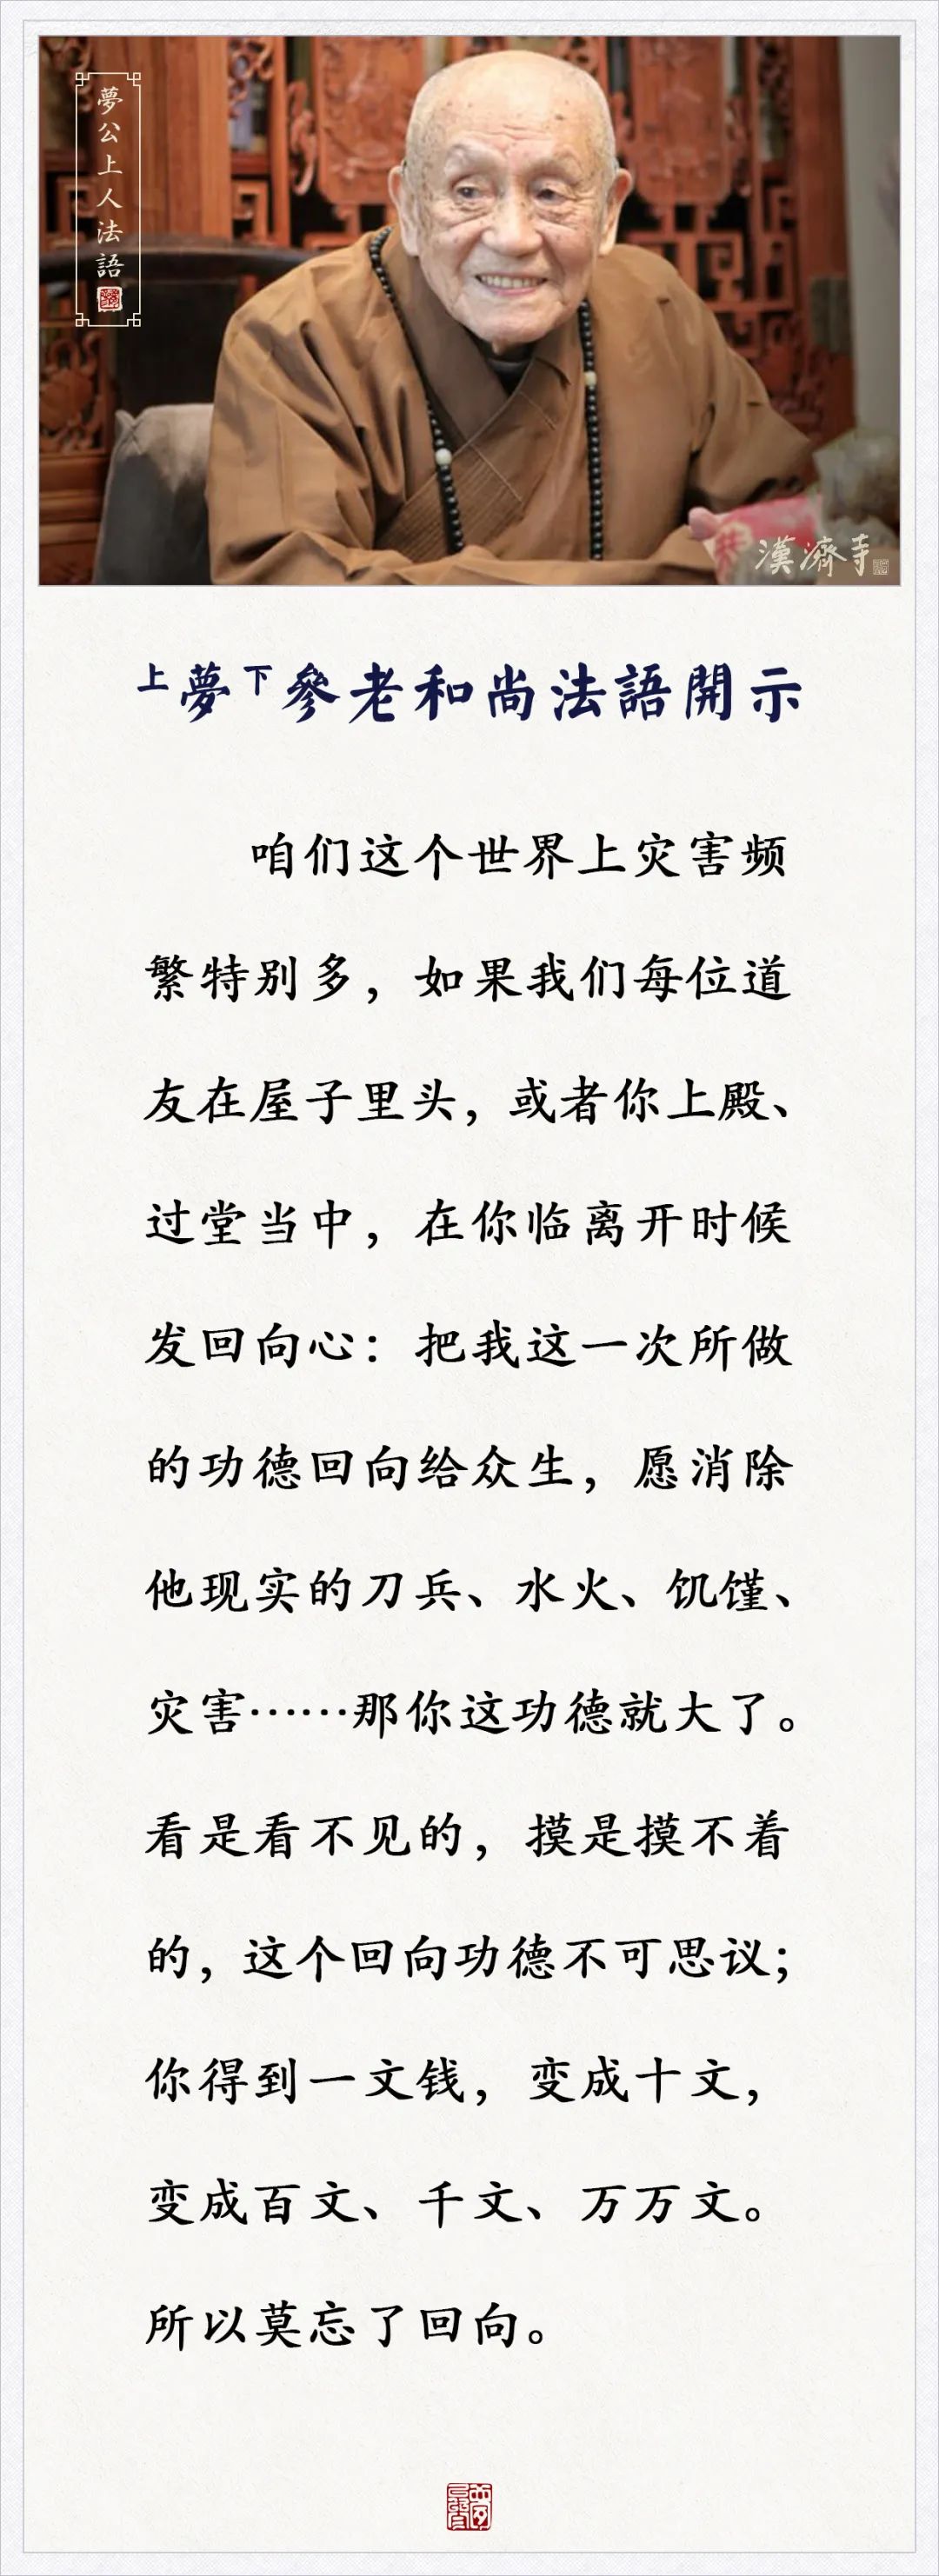 夢公上人法語
漢濟寺
上夢下參老和尚法語開示
咱们这个世界上灾害频
繁特别多，如果我们每位道
友在屋子里头，或者你上殿、
过堂当中，在你临离开时候
发回向心：把我这一次所做
的功德回向给众生，愿消除
他现实的刀兵、水火、饥馑、
灾害……那你这功德就大了。
看是看不见的，摸是摸不着
的，这个回向功德不可思议；
你得到一文钱，变成十文，
变成百文、千文、万万文。
所以莫忘了回向。